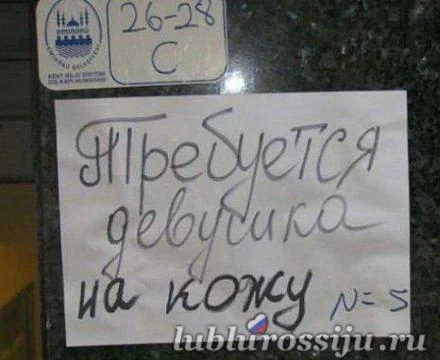 EMİNÖNÜ
EMİNÖNÜ BELEDİYESİ
KENT BİLGİ SİSTEMİ
DIŞ KAPI NUMARASI
26-28
C
Требуется
девушка
на кожу N=5
lublurossiju.ru